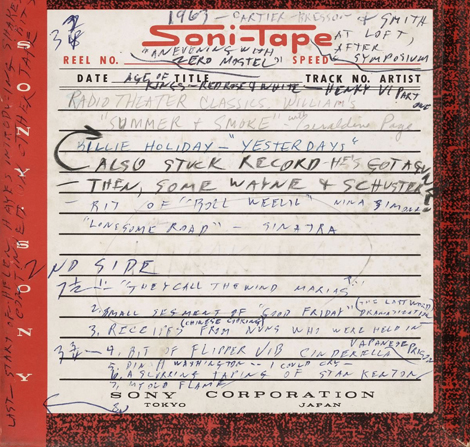 1963 - CARTIER-BRESSON & SMITH
3 3/4
Soni-Tape
AT LOFT,
AFTER
SYMPOSIUM
"AN EVENING WITH
ZERO MOSTEL"
REEL NO. SPEED
DATE TITLE TRACK NO. ARTIST
AGE OF
KINGS - RED ROSE & WHITE - HENRY VI PART
ONE
RADIO THEATER CLASSICS, WILLIAM'S
"SUMMER & SMOKE" with Geraldine Page
BILLIE HOLIDAY - "YESTERDAYS"
ALSO STUCK RECORD - HE'S GOT A GUN
THEN, SOME WAYNE & SCHUSTER
- BIT OF "BOLL WEEVIL" NINA SIMONE
"LONESOME ROAD" - SINATRA
2ND SIDE
7 1/2 1. "THEY CALL THE WIND MARIAH"
2. SMALL SEGMENT OF "GOOD FRIDAY" (THE LAST WORD DRAMATIZATION)
3. RECEIPES FROM NUNS WHO WERE HELD IN
JAPANESE PRISON
3 3/4 - 4. BIT OF FLIPPER V/B CINDERELLA
5. DINAH WASHINGTON - I COULD CRY -
6. A SLURRING TAPING OF STAN KENTON
7. MY OLD FLAME
SONY CORPORATION
TOKYO JAPAN
SONY SONY
LAST - START OF HELEN HAYES INTRODUCING
OTHER TAPE